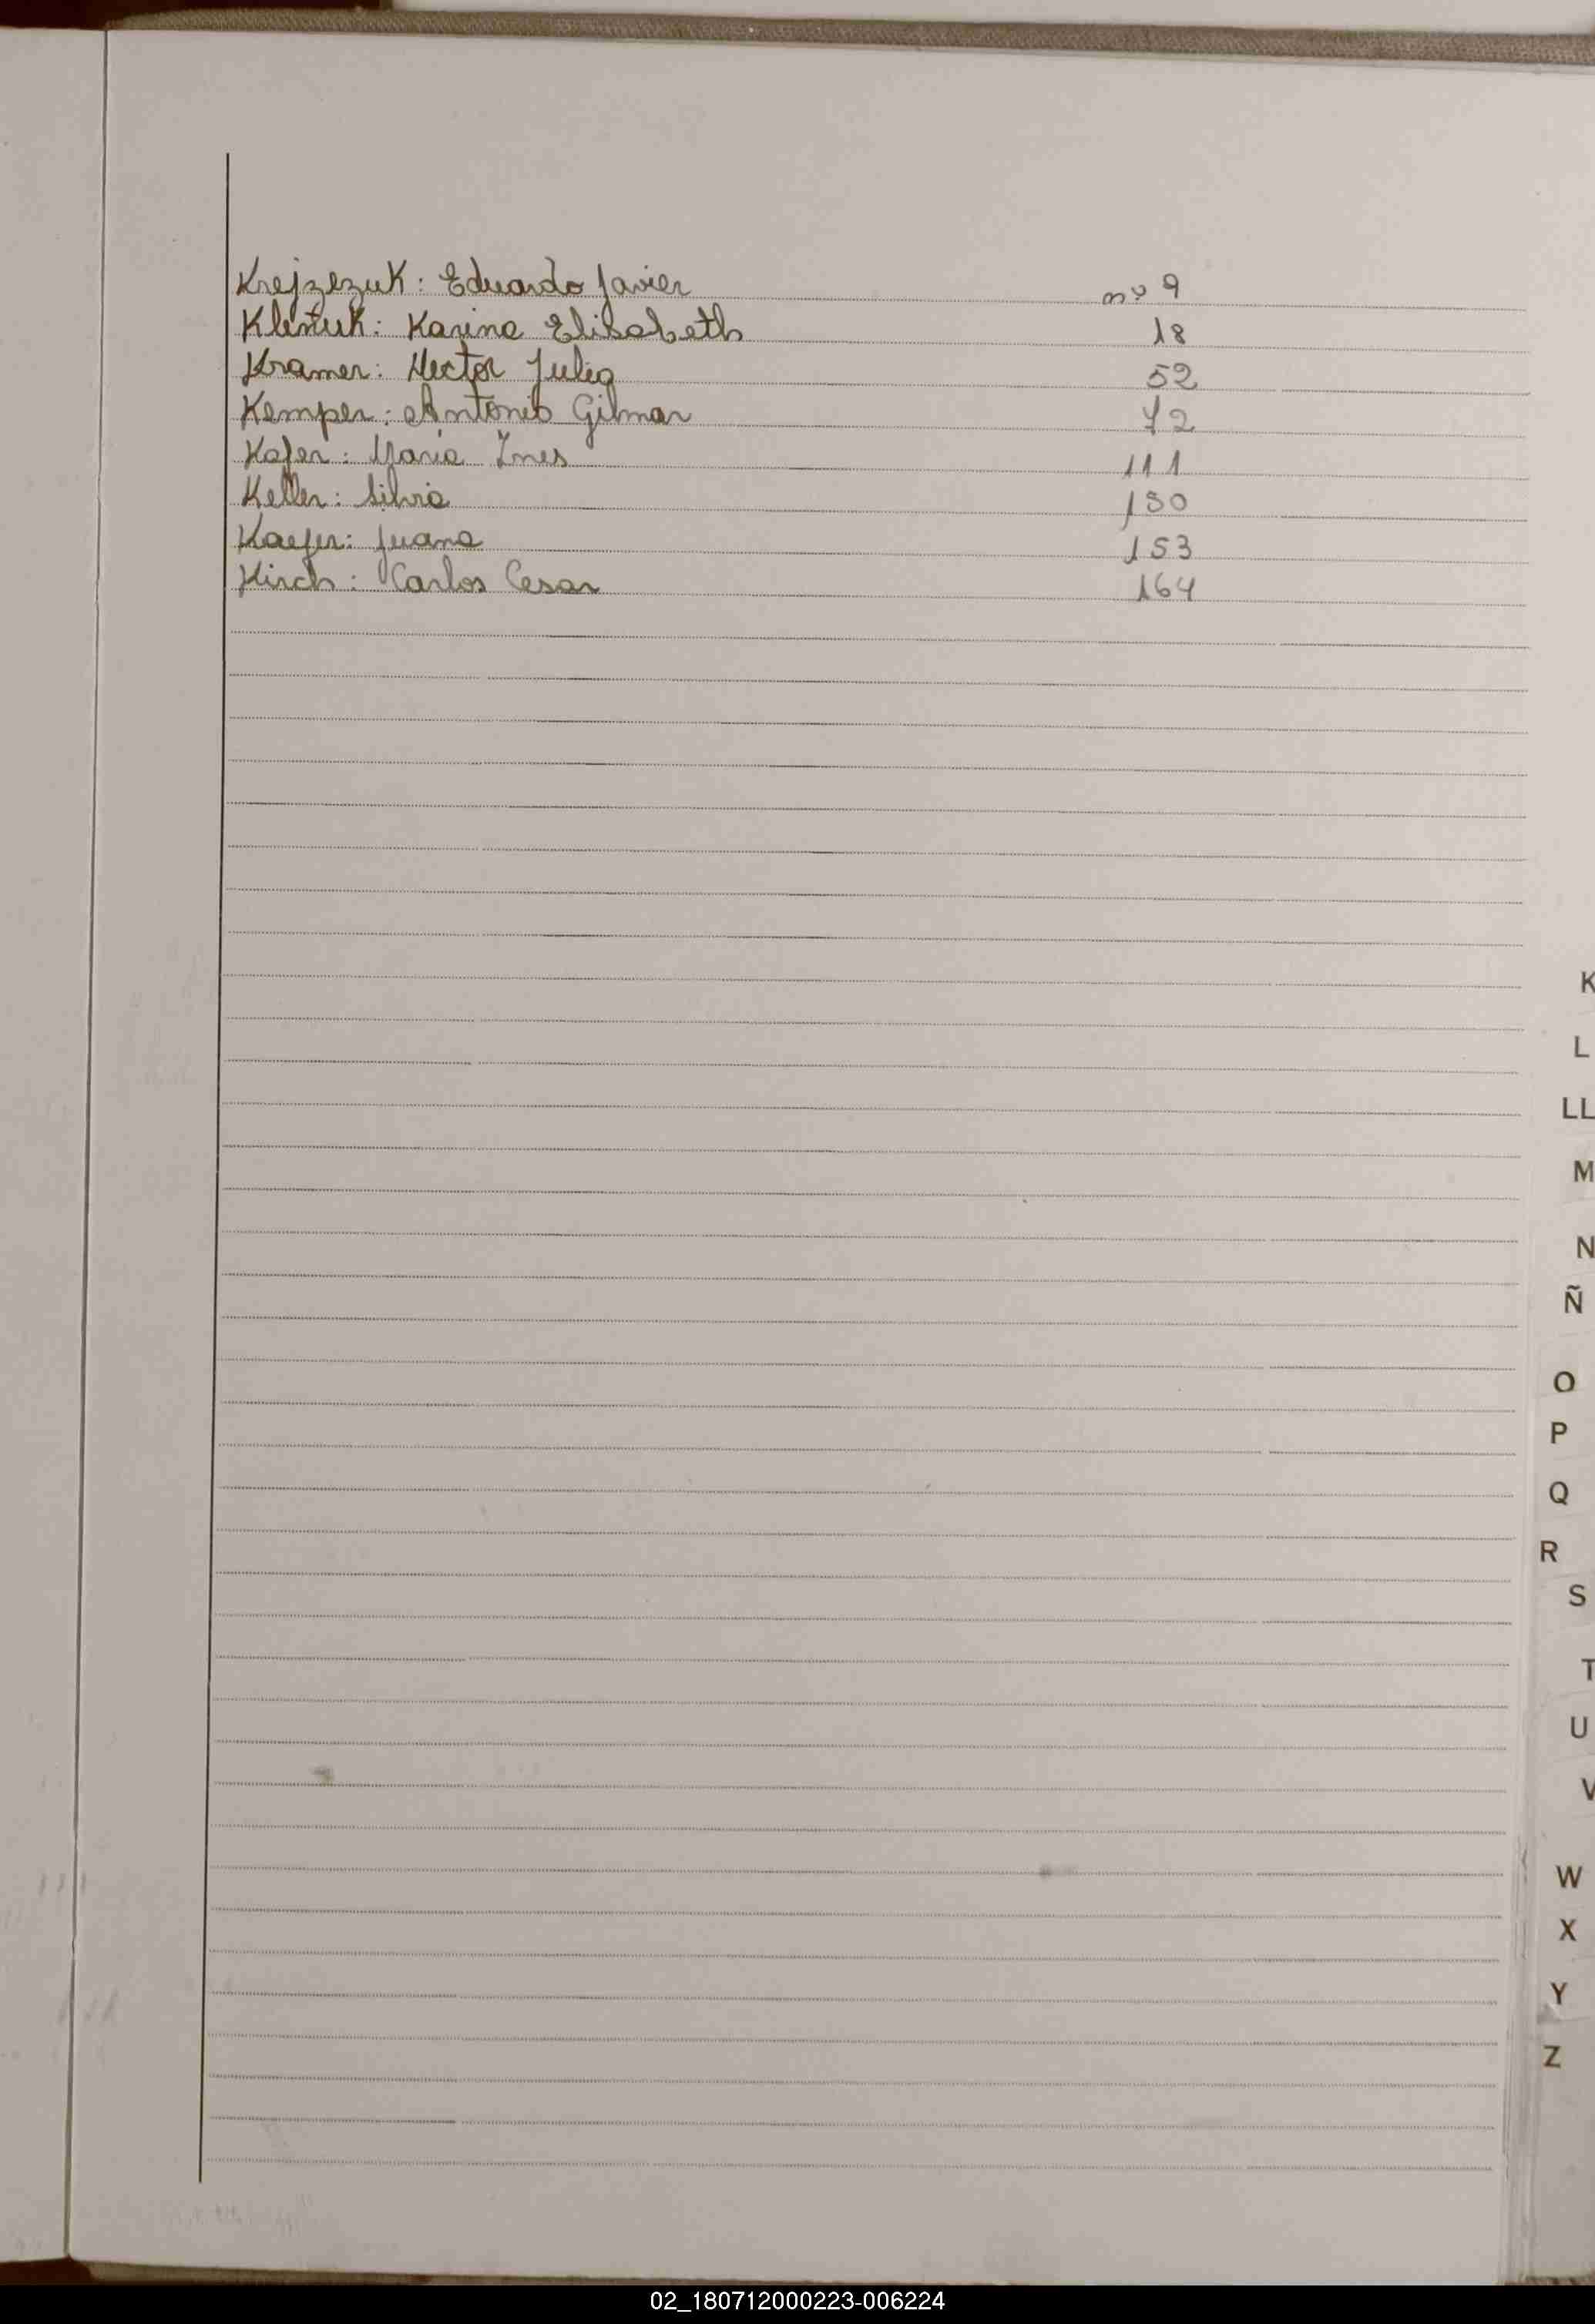 Krejzezuk: Eduardo Javier nº 9
Klentuk: Karina Elisabeth 18
Kramer: Hector Julio 52
Kemper: Antonio Gilmar 72
Kafer: Maria Ines 111
Keller: Silvia 130
Kaefer: Juana 153
Kirch: Carlos Cesar 164
K
L
LL
M
N
Ñ
O
P
Q
R
S
T
U
V
W
X
Y
Z
02_180712000223-006224